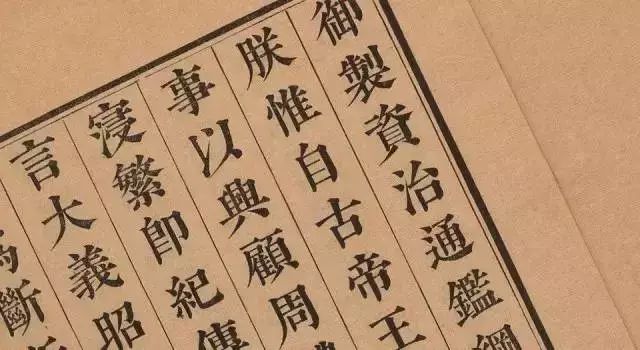 御製資治通鑑綱
朕惟自古帝王
事以興顧周
寖繁即紀傳
言大義昭
斷